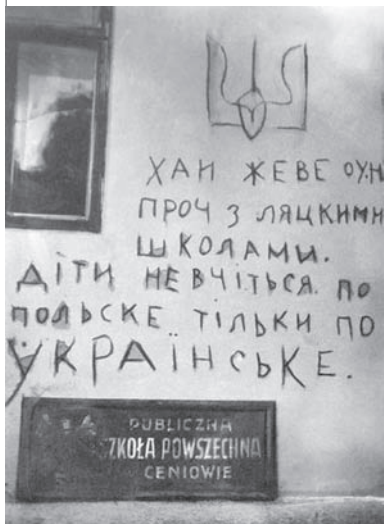 ХАИ ЖЕВЕ ОУН
ПРОЧ З ЛЯЦКИМИ
ШКОЛАМИ.
ДІТИ НЕ ВЧІТЬСЯ ПО
ПОЛЬСКЕ ТІЛЬКИ ПО
УКРАЇНСЬКЕ.
PUBLICZNA
ZKOŁA POWSZECHNA
CENIOWIE